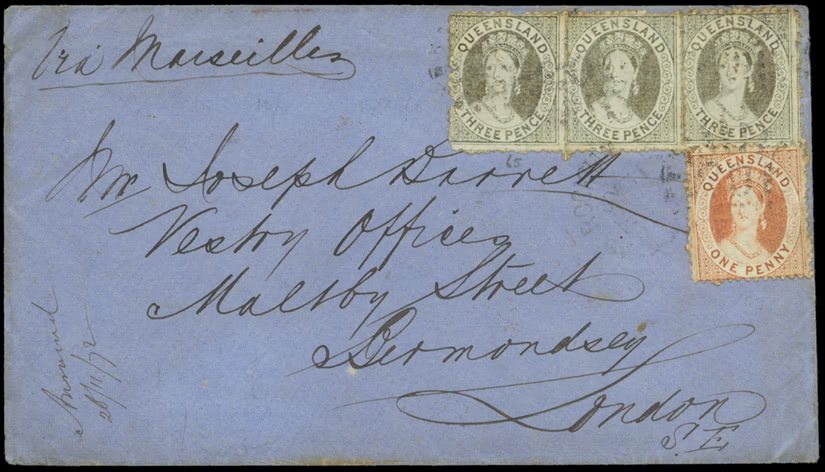 Via Marseilles
QUEENSLAND
THREE PENCE
QUEENSLAND
THREE PENCE
QUEENSLAND
THREE PENCE
65
QUEENSLAND
ONE PENNY
Mr Joseph Barrett
Vestry Offices
Maltby Street
Bermondsey
London
S.E.
Answered
28/11/72